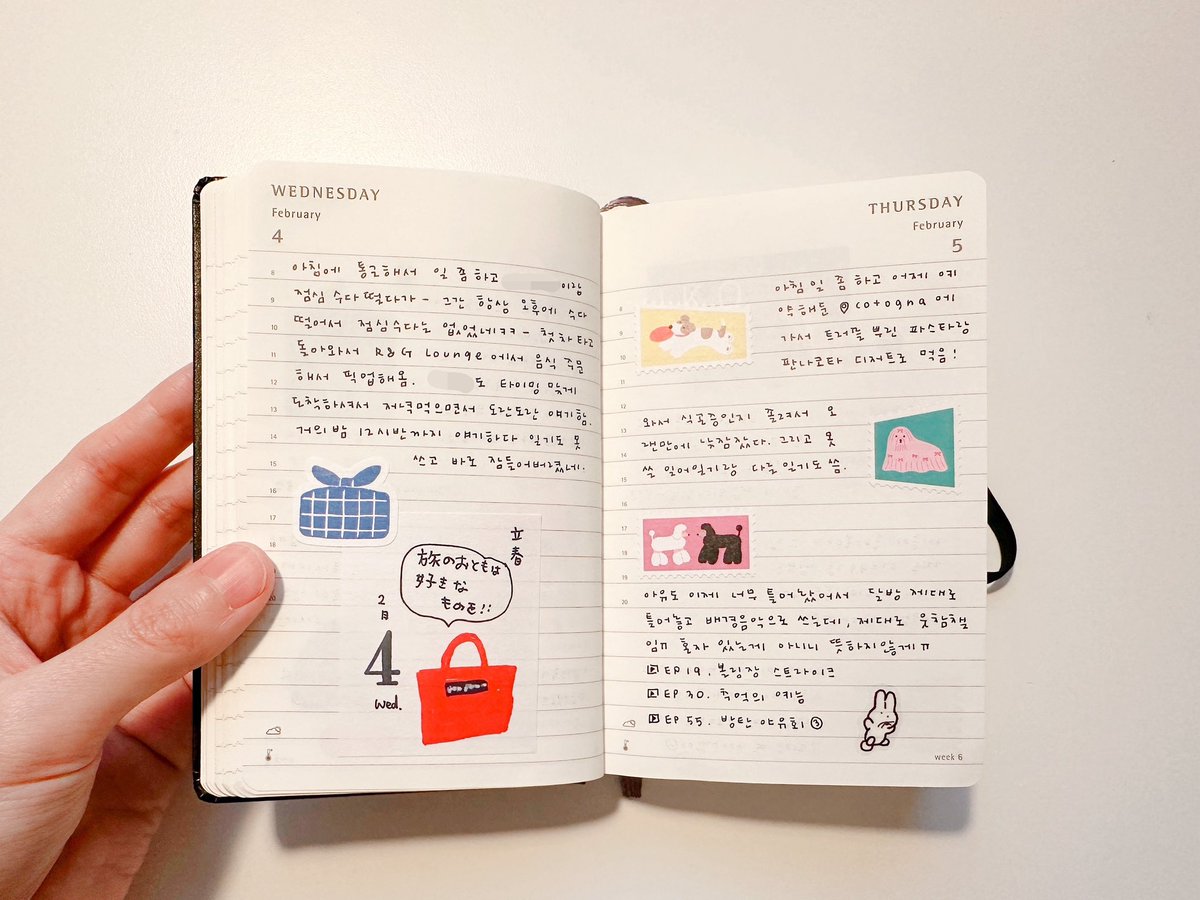 WEDNESDAY
February
4
8
아침에 통근해서 일 좀 하고 이랑
9
점심 수다 떨다가 - 그간 항상 오후에 수다
10
떨어서 점심수다는 없었네ㅋㅋ - 첫 차 타고
11
돌아와서 R&G Lounge 에서 음식 주문
12
해서 픽업해옴. 도 타이밍 맞게
13
도착하셔서 저녁먹으면서 도란도란 얘기함.
14
거의 밤 12시반까지 얘기하다 일기도 못
15
쓰고 바로 잠들어버렸네.
16
17
18
20
立春
旅のおともは
好きな
ものを!!
2月
4
wed.
THURSDAY
February
5
아침 일 좀 하고 어제 예
8
약 해둔 cotogna 에
9
가서 트러플 뿌린 파스타랑
10
판나코타 디저트로 먹음!
11
12
와서 식곤증인지 졸려서 오
13
랜만에 낮잠잤다. 그리고 못
14
쓴 일어일기랑 다른 일기도 씀.
15
16
17
18
19
야유도 이제 너무 틀어놨어서 달방 제대로
20
틀어놓고 배경음악으로 쓰는데, 제대로 웃참챌
임ㅠ 혼자 있는게 아니니 뜻하지않게ㅠ
EP 19. 볼링장 스트라이크
EP 30. 추억의 예능
EP 55. 방탄 야유회 ③
week 6